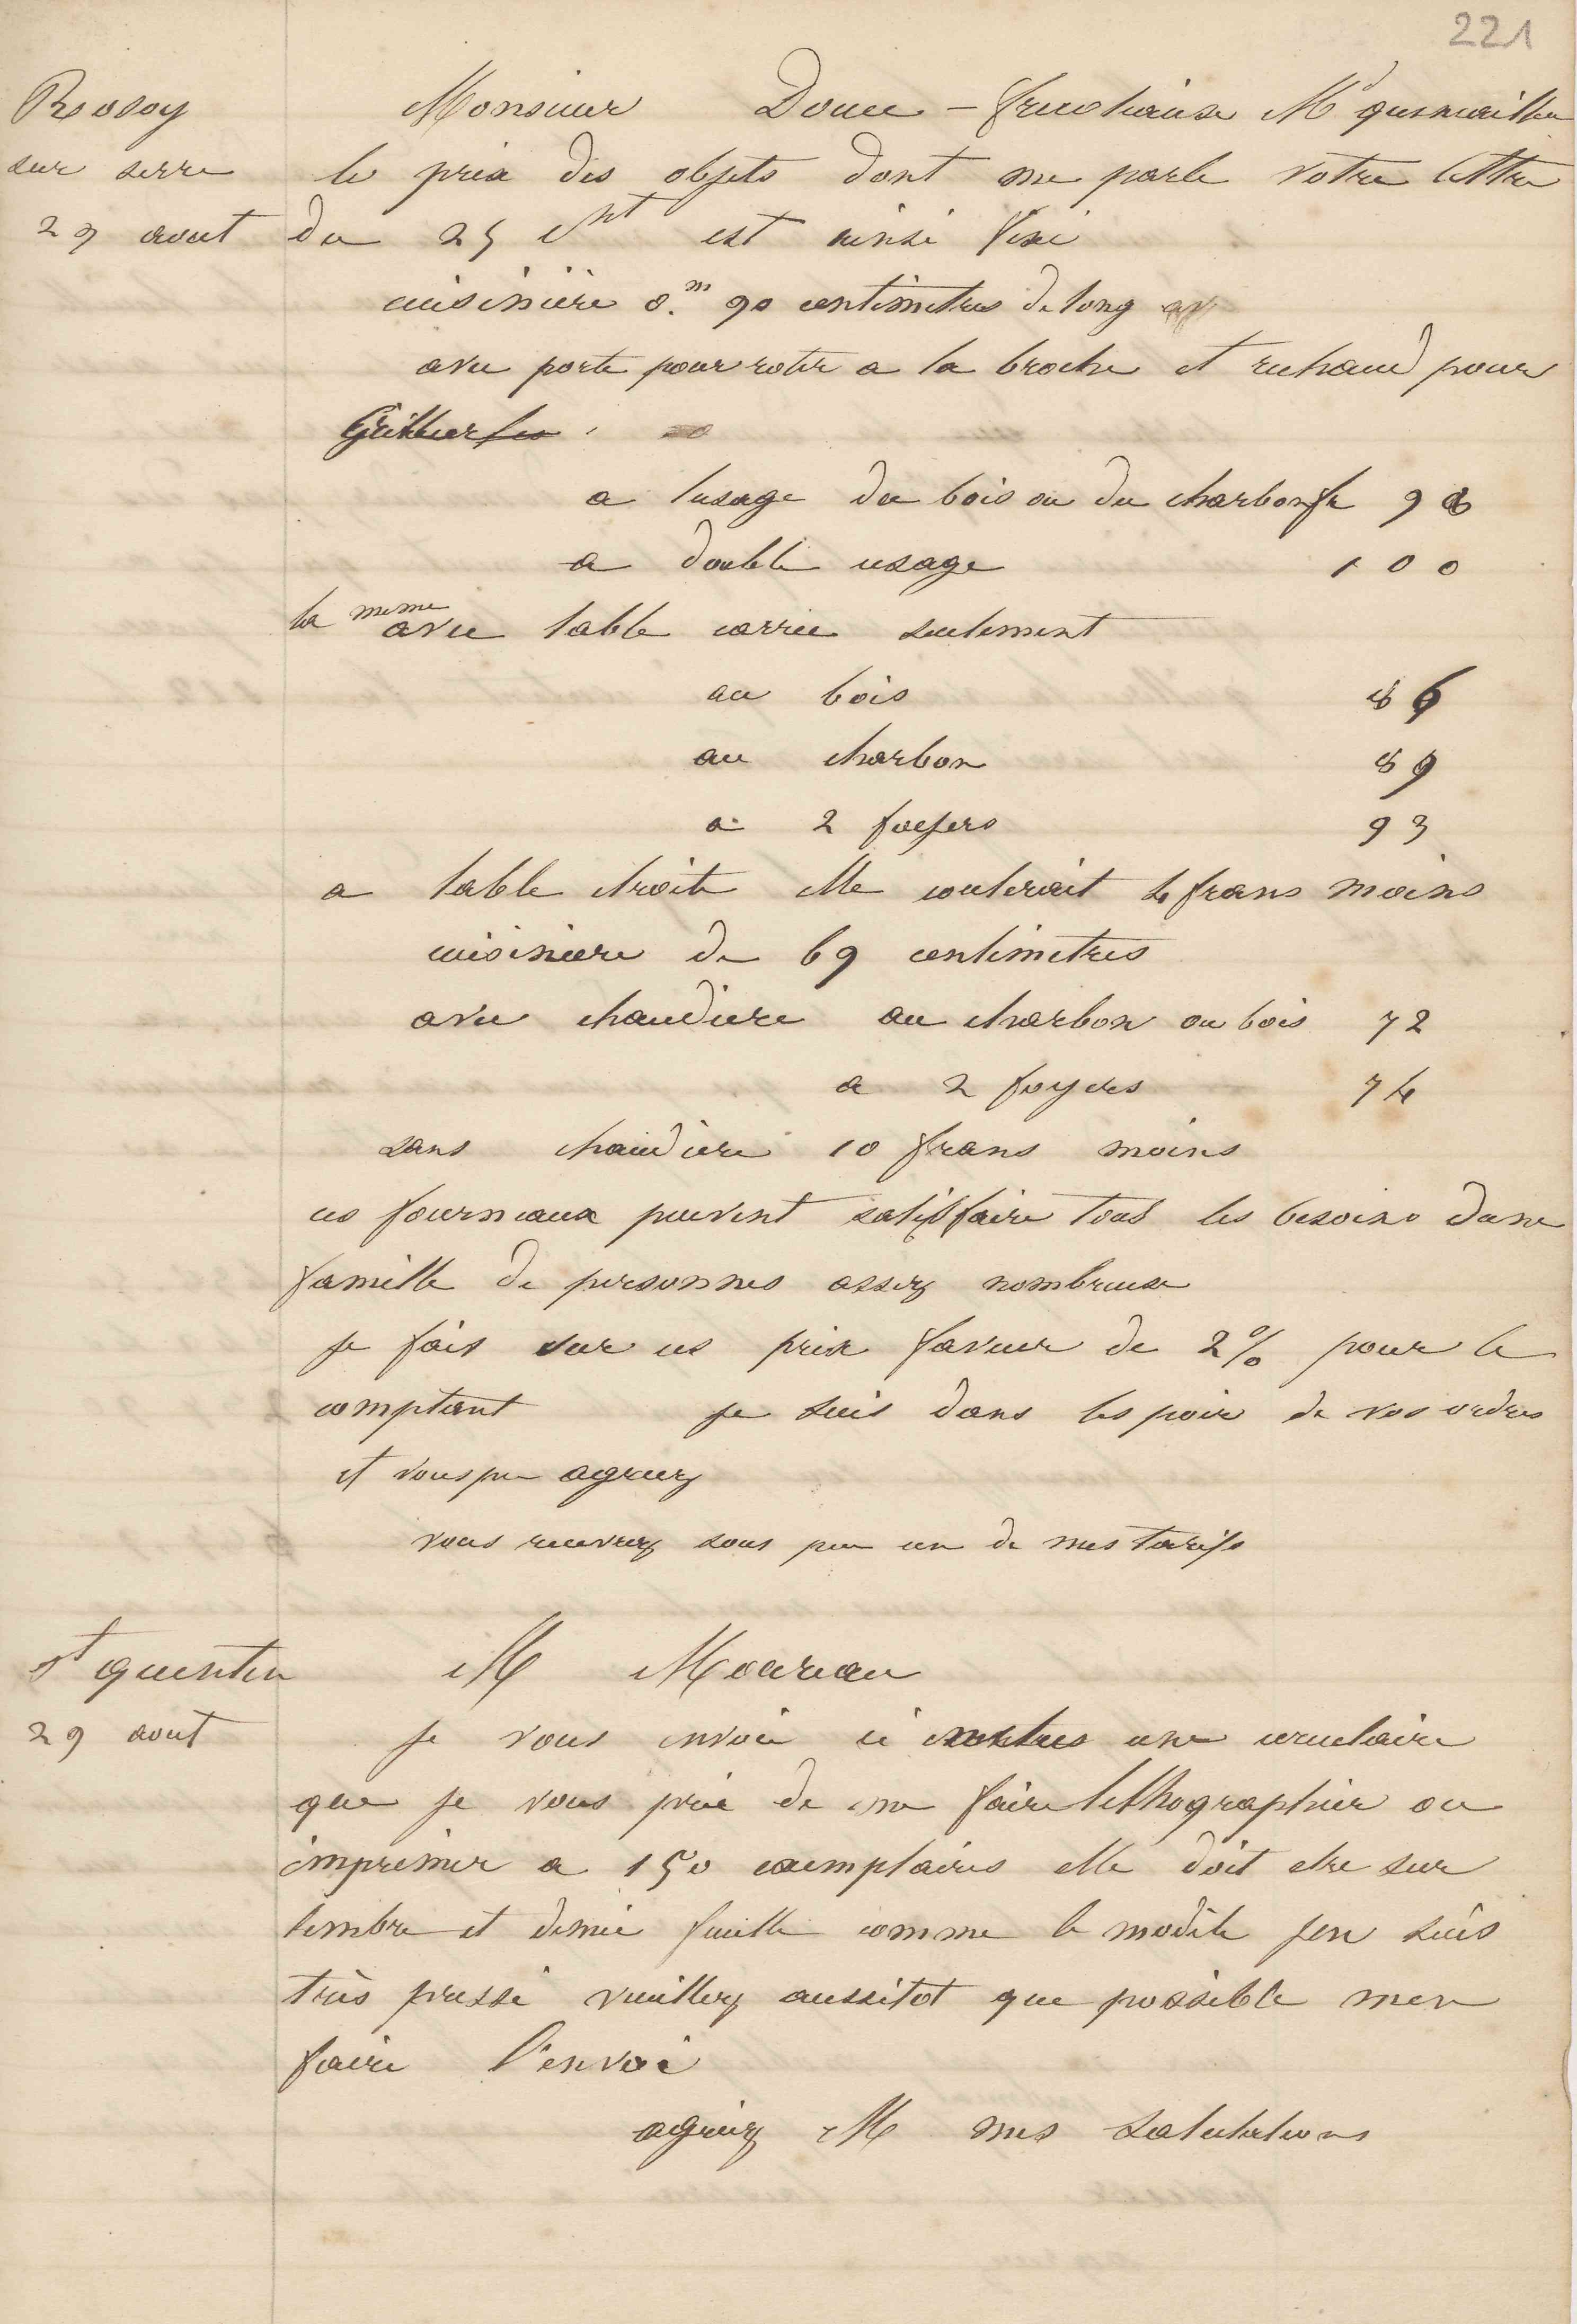 221
Rosoy
sur serre
29 aout
Monsieur Douce - fruchaux Md quincailler
le prix des objets dont me parle votre lettre
du 25 Ct est ainsi fixé
cuisinière 0.m 90 centimetres de long
avec porte pour rotir a la broche et rechaud pour
Griller les
a lusage du bois ou du charbon fr 98
a double usage 100
la meme avec table carrée seulement
au bois 86
au charbon 89
a 2 foyers 93
a table droite elle couterait 4 francs moins
cuisiniere de 69 centimetres
avec chaudiere au charbon ou bois 72
a 2 foyers 74
sans chaudière 10 francs moins
ces fourneaux peuvent satisfaire tous les besoins dune
famille de personnes assez nombreuse
je fais sur ces prix faveur de 2% pour le
comptant je suis dans lespoir de vos ordres
et vous prie agreez
vous recevrez sous peu un de mes tarifs
St quentin
29 aout
M Moureau
je vous envoie ci une circulaire
que je vous prie de me faire lithographier ou
imprimer a 150 exemplaires elle doit etre sur
timbre et demie feuille comme le modèle jen suis
très pressé veuillez aussitot que possible men
faire l'envoi
agréez M mes salutations